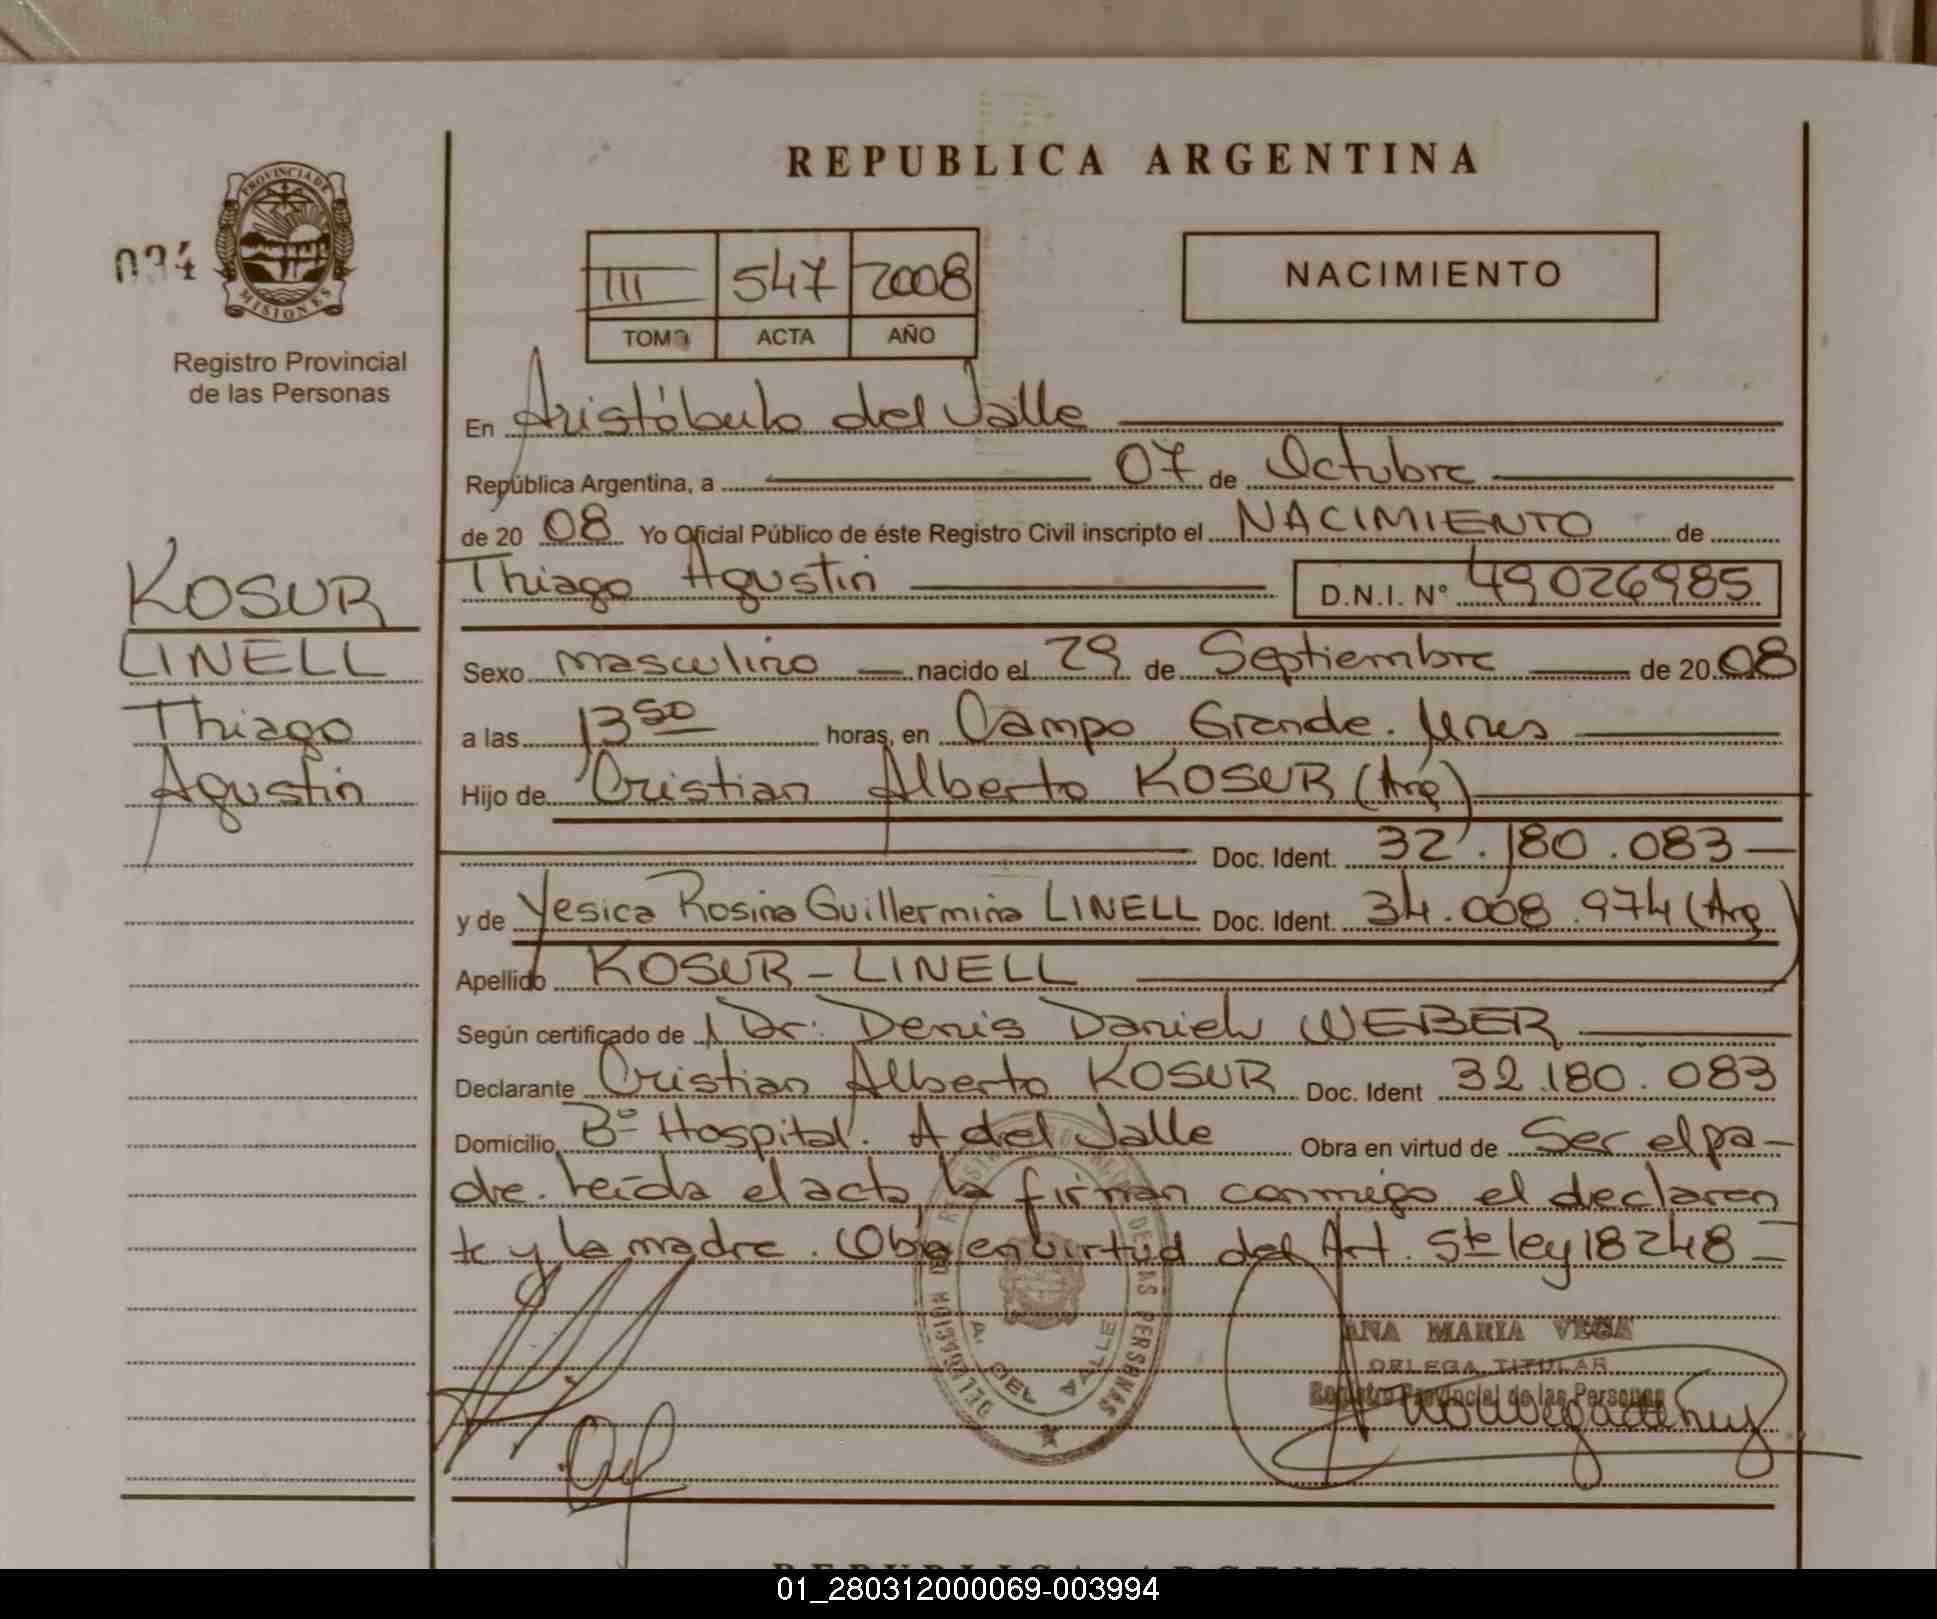 REPUBLICA ARGENTINA
PROVINCIA DE
MISIONES
034
Registro Provincial
de las Personas
III 547 2008
TOMO ACTA AÑO
NACIMIENTO
En Aristóbulo del Valle
República Argentina, a 07 de Octubre
de 20 08 Yo Oficial Público de éste Registro Civil inscripto el NACIMIENTO de
Thiago Agustin D.N.I. N° 49026985
KOSUR
LINELL
Thiago
Agustin
Sexo masculino nacido el 29 de Septiembre de 20 08
a las 13 50 horas, en Campo Grande. Mnes
Hijo de Cristian Alberto KOSUR (Arg)
Doc. Ident. 32.180.083
y de Yesica Rosina Guillermina LINELL Doc. Ident. 34.008.974 (Arg)
Apellido KOSUR - LINELL
Según certificado de Dr: Denis Daniel WEBER
Declarante Cristian Alberto KOSUR Doc. Ident 32.180.083
Domicilio B° Hospital. A del Valle Obra en virtud de Ser el pa-
dre. Leída el acta la firman conmigo el declaran
te y la madre. Obra en virtud del Art. 5te ley 18248
DE LAS PERSONAS
A. DEL VALLE
ANA MARIA VEGA
DELEGA TITULAR
Registro Provincial de las Personas
REPUBLICA ARGENTINA
01_280312000069-003994